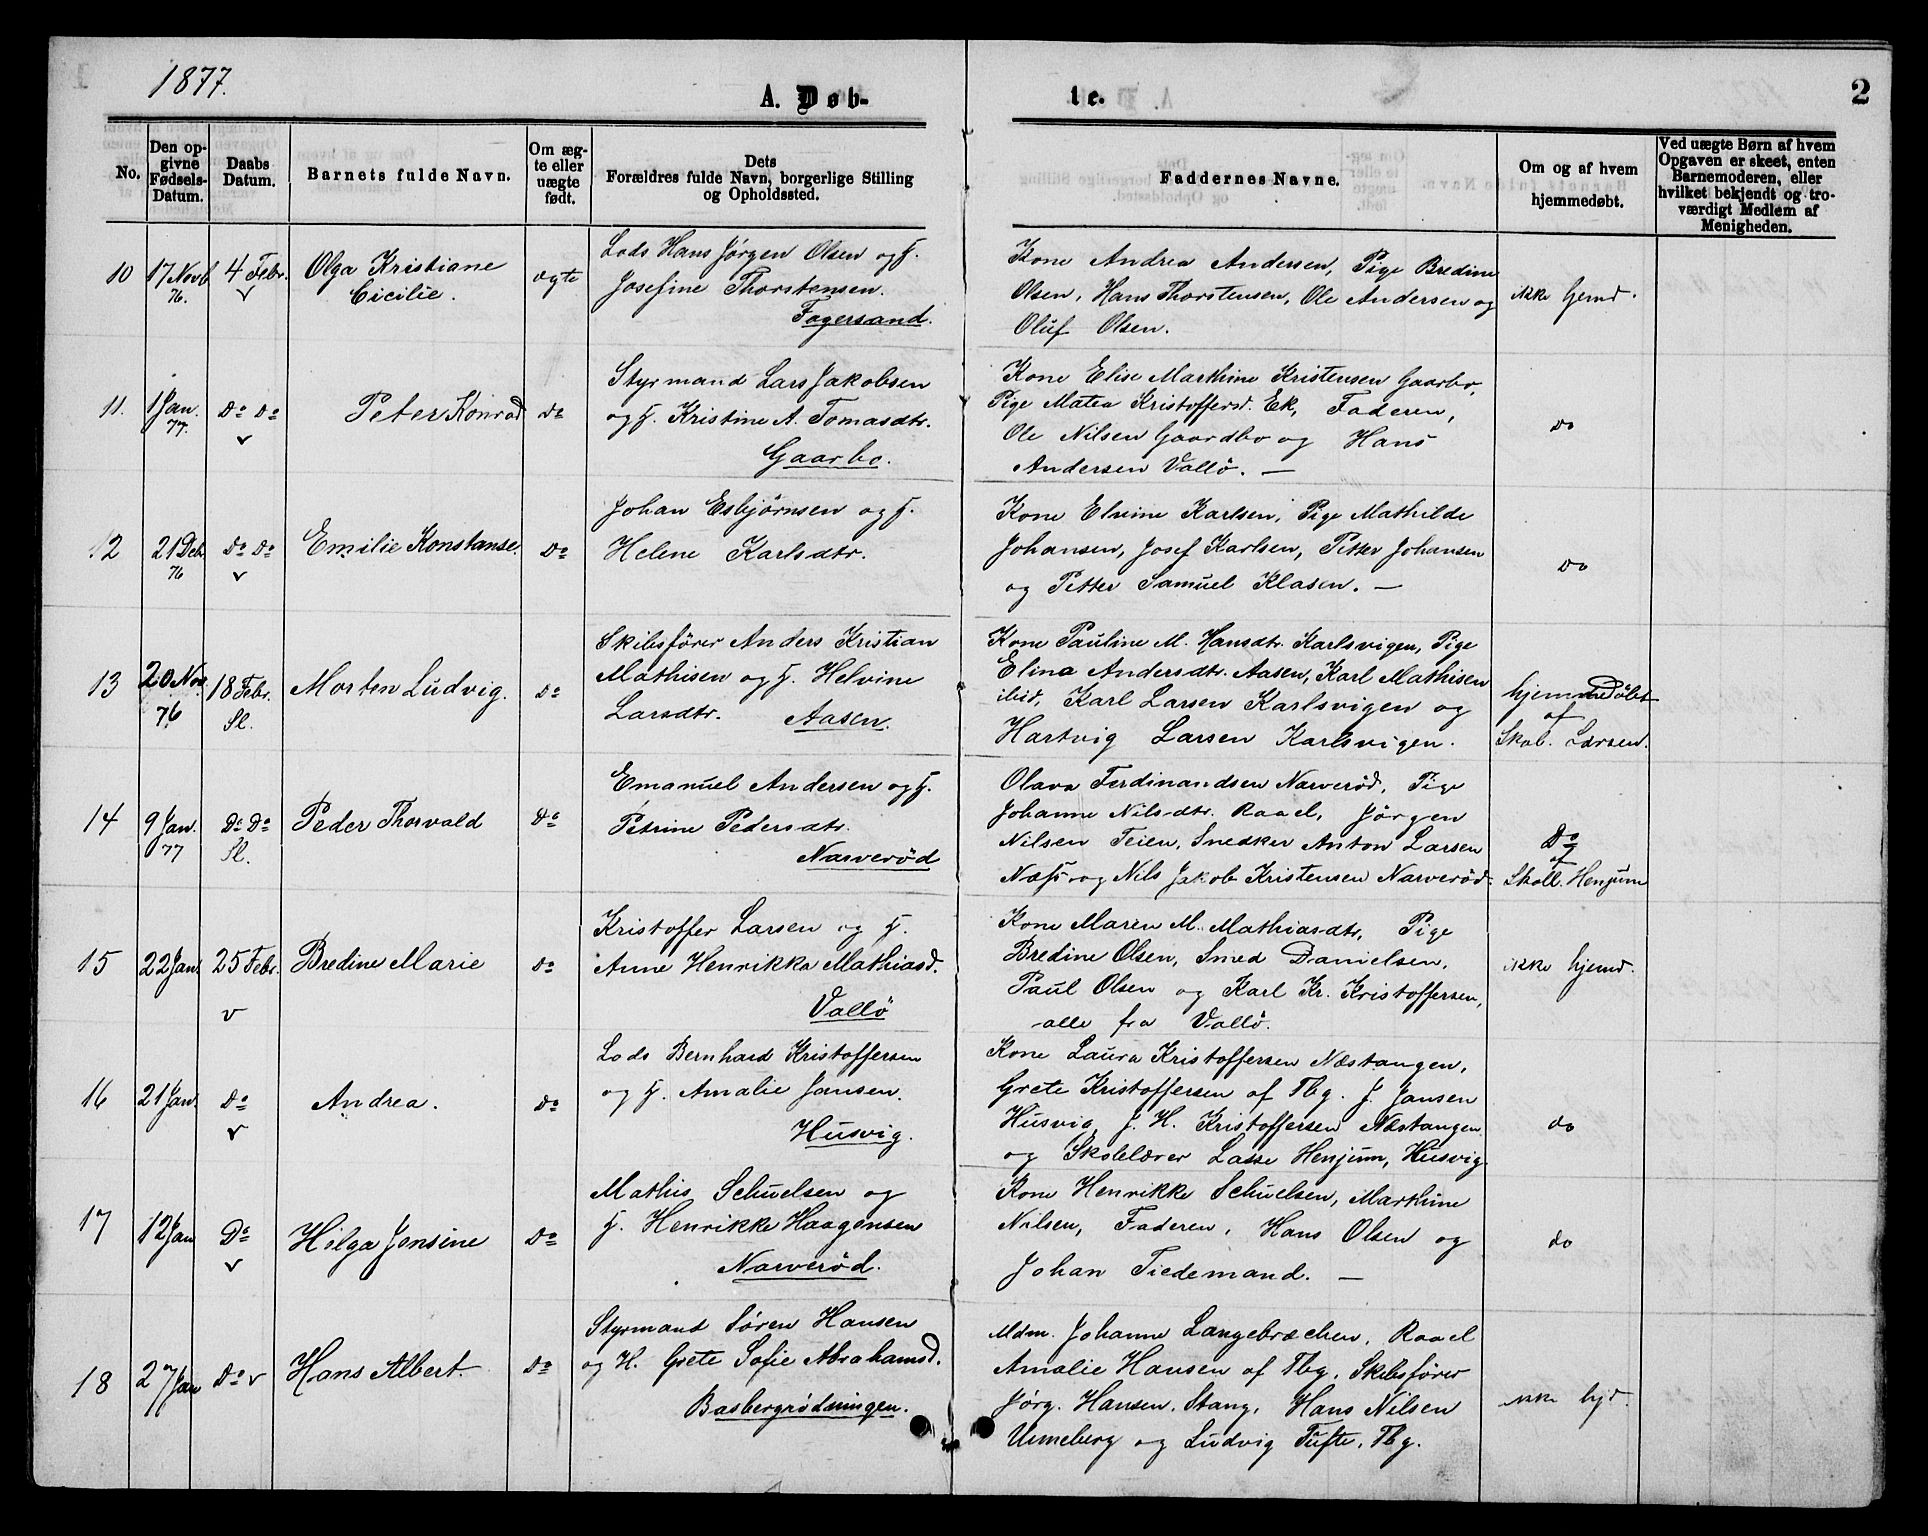 1877.
A. Døb-
te.
2
No.
Den op-
givne
Fødsels-
Datum.
Daabs
Datum.
Barnets fulde Navn.
Om æg-
te eller
uægte
født.
Dets
Forældres fulde Navn, borgerlige Stilling
og Opholdssted.
Faddernes Navne.
Om og af hvem
hjemmedøbt.
Ved uægte Børn af hvem
Opgaven er skeet, enten
Barnemoderen, eller
hvilket bekjendt og tro-
værdigt Medlem af
Menigheden.
10
17 Novb
76.
4 Febr.
Olga Kristiane
Cicilie.
ægte
Lods Hans Jörgen Olsen og H.
Josefine Thorstensen.
Fagersand.
Kone Andrea Andersen, Pige Bredine
Olsen, Hans Thorstensen, Ole Andersen og
Oluf Olsen.
ikke hjemd.
11.
1 Jan.
77.
Do Do
Peter Konrad
Do
Styrmand Lars Jakobsen
og H. Kristine A. Tomasdtr.
Gaarbo.
Kone Elise Marthine Kristensen Gaarbo,
Pige Matea Kristoffersd. Ek, Faderen,
Ole Nilsen Gaardbo og Hans
Andersen Vallö. —
do
12
21 Deb.
76
Do Do
Emilie Konstanse.
Do
Johan Esbjörnsen og H.
Helene Karlsdtr.
Kone Elvine Karlsen, Pige Mathilde
Johansen, Josef Karlsen, Petter Johansen
og Petter Samuel Klasen. —
do
13
20 Nov.
76
18 Febr.
Sl.
Morten Ludvig.
Do
Skibsförer Anders Kristian
Mathisen og H. Helvine
Larsdtr. Aasen.
Kone Pauline M. Hansdtr. Karlsvigen, Pige
Elina Andersdtr. Aasen, Karl Mathisen
ibid, Karl Larsen Karlsvigen og
Hartvig Larsen Karlsvigen.
hjemmedöbt
af
Skol. Larsen.
14
9 Jan.
77
Do Do
Sl.
Peder Thorvald
Do
Emanuel Andersen og H.
Petrine Pedersdtr.
Narveröd
Olava Ferdinandsen Narveröd, Pige
Johanne Nilsdtr. Raael, Jörgen
Nilsen Teien, Snedker Anton Larsen
Næss og Nils Jakob Kristensen Narveröd.
Do
af
Skoll. Henjum
15
22 Jan.
25 Febr.
v
Bredine Marie
Do
Kristoffer Larsen og H.
Anne Henrikka Mathiasd.
Vallö
Kone Maren M. Mathiasdtr, Pige
Bredine Olsen, Smed Danielsen,
Paul Olsen og Karl Kr. Kristoffersen,
alle fra Vallö.
ikke hjemd.
16
21 Jan.
Do
v
Andrea.
Do
Lods Bernhard Kristoffersen
og H. Amalie Jansen.
Husvig.
Kone Laura Kristoffersen Næstangen,
Grete Kristoffersen af Tbg. J. Jansen
Husvig, J. H. Kristoffersen Næstangen
og Skolelærer Lasse Henjum, Husvig.
do
17
12 Jan
Do
v
Hilga Jensine
Do
Mathis Schuelsen og
H. Henrikke Haagensen
Narveröd.
Kone Henrikke Schuelsen, Marthine
Nilsen, Faderen, Hans Olsen og
Johan Tiedemand. —
do
18
27 Jan
Do v
Hans Albert.
Do
Styrmand Sören Hansen
og H. Grete Sofie Abrahamsd.
Basbergrödningen.
Mdm. Johanne Langebræchen, Raael
Amalie Hansen af Tbg, Skibsförer
Jörg. Hansen, Stang, Hans Nilsen
Unneberg og Ludvig Tufte, Tbg.
ikke hjd.